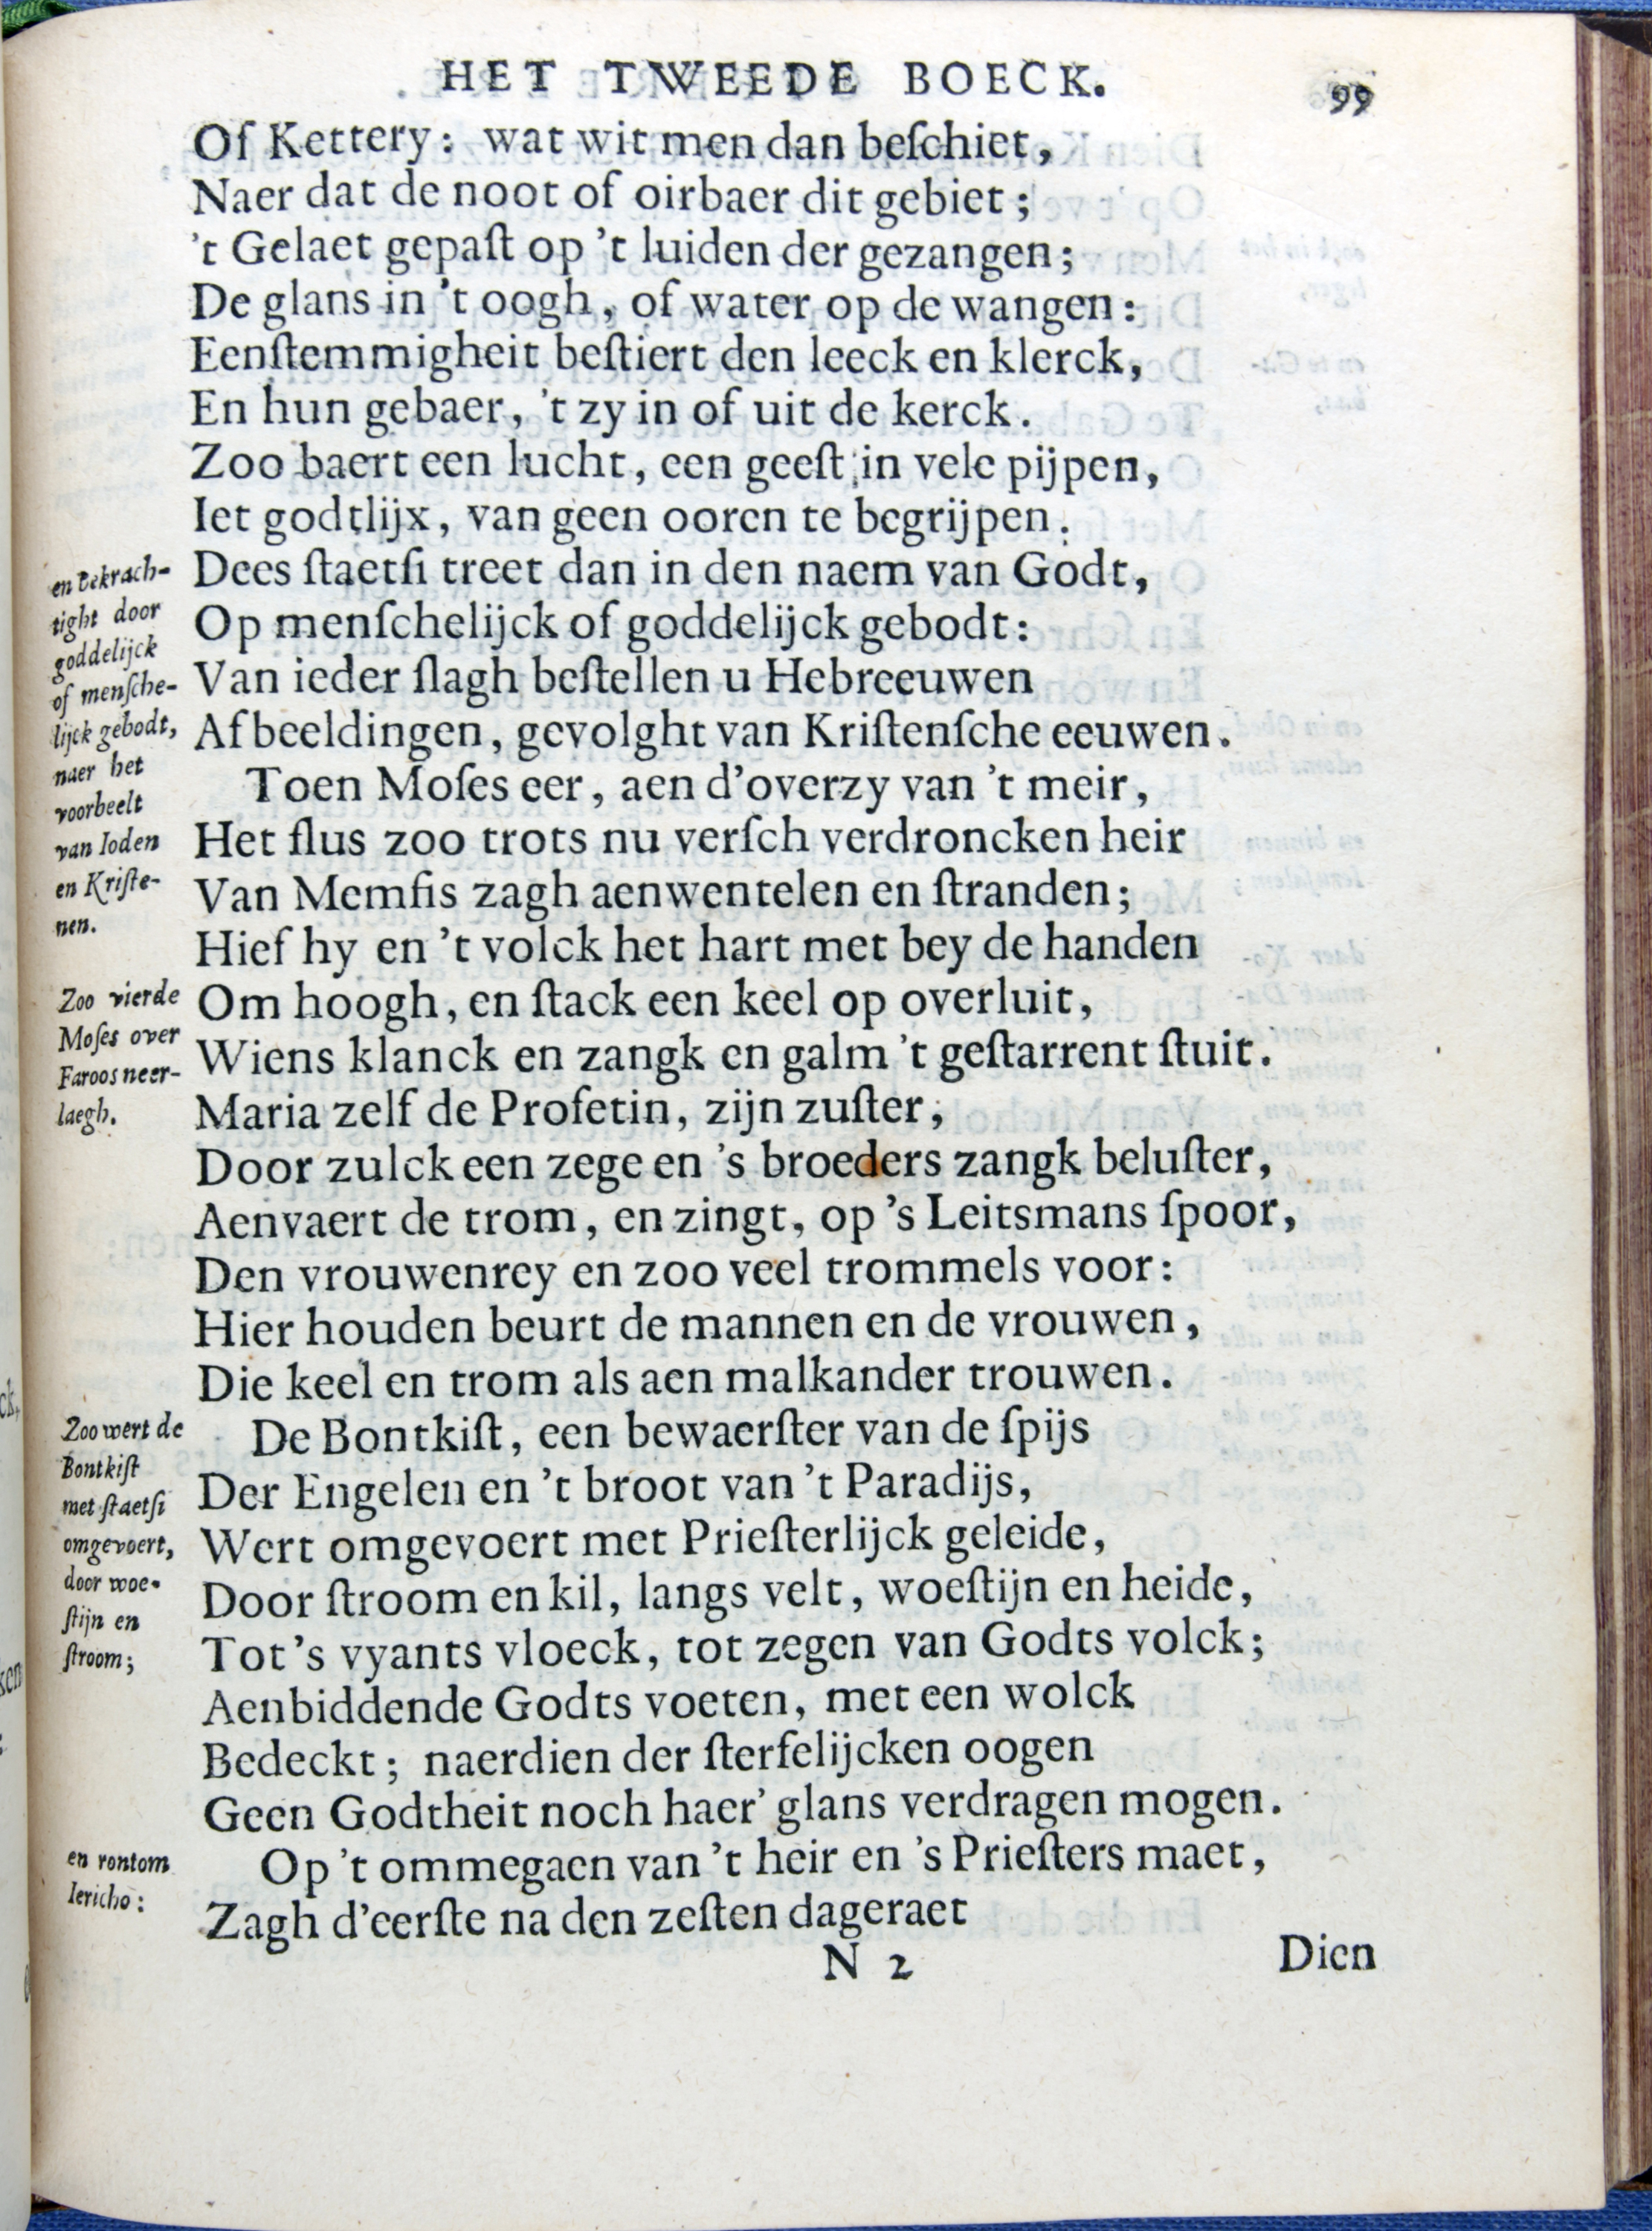 HET TWEEDE BOECK. 99
Of Kettery: wat wit men dan beſchiet,
Naer dat de noot of oirbaer dit gebiet;
't Gelaet gepaſt op 't luiden der gezangen;
De glans in 't oogh, of water op de wangen:
Eenſtemmigheit beſtiert den leeck en klerck,
En hun gebaer, 't zy in of uit de kerck.
Zoo baert een lucht, een geeſt in vele pijpen,
Iet godtlijx, van geen ooren te begrijpen.
Dees ſtaetſi treet dan in den naem van Godt,
Op menſchelijck of goddelijck gebodt:
Van ieder ſlagh beſtellen u Hebreeuwen
Afbeeldingen, gevolght van Kriſtenſche eeuwen.
en bekrach-
tight door
goddelijck
of menſche-
lijck gebodt,
naer het
voorbeelt
van Ioden
en Kriſte-
nen.
Toen Moſes eer, aen d'overzy van 't meir,
Het flus zoo trots nu verſch verdroncken heir
Van Memfis zagh aenwentelen en ſtranden;
Hief hy en 't volck het hart met bey de handen
Om hoogh, en ſtack een keel op overluit,
Wiens klanck en zangk en galm 't geſtarrent ſtuit.
Zoo vierde
Moſes over
Faroos neer-
laegh.
Maria zelf de Profetin, zijn zuſter,
Door zulck een zege en 's broeders zangk beluſter,
Aenvaert de trom, en zingt, op 's Leitsmans ſpoor,
Den vrouwenrey en zoo veel trommels voor:
Hier houden beurt de mannen en de vrouwen,
Die keel en trom als aen malkander trouwen.
De Bontkiſt, een bewaerſter van de ſpijs
Der Engelen en 't broot van 't Paradijs,
Wert omgevoert met Prieſterlijck geleide,
Door ſtroom en kil, langs velt, woeſtijn en heide,
Tot 's vyants vloeck, tot zegen van Godts volck;
Zoo wert de
Bontkiſt
met ſtaetſi
omgevoert,
door woe-
ſtijn en
ſtroom;
Aenbiddende Godts voeten, met een wolck
Bedeckt; naerdien der ſterfelijcken oogen
Geen Godtheit noch haer' glans verdragen mogen.
Op 't ommegaen van 't heir en 's Prieſters maet,
Zagh d'eerſte na den zeſten dageraet
en rontom
Iericho:
N 2 Dien